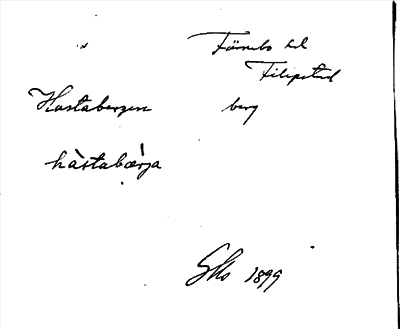 Färnebo hd
Filipstad
Hastabergen berg
hàstabærja
GKs 1899